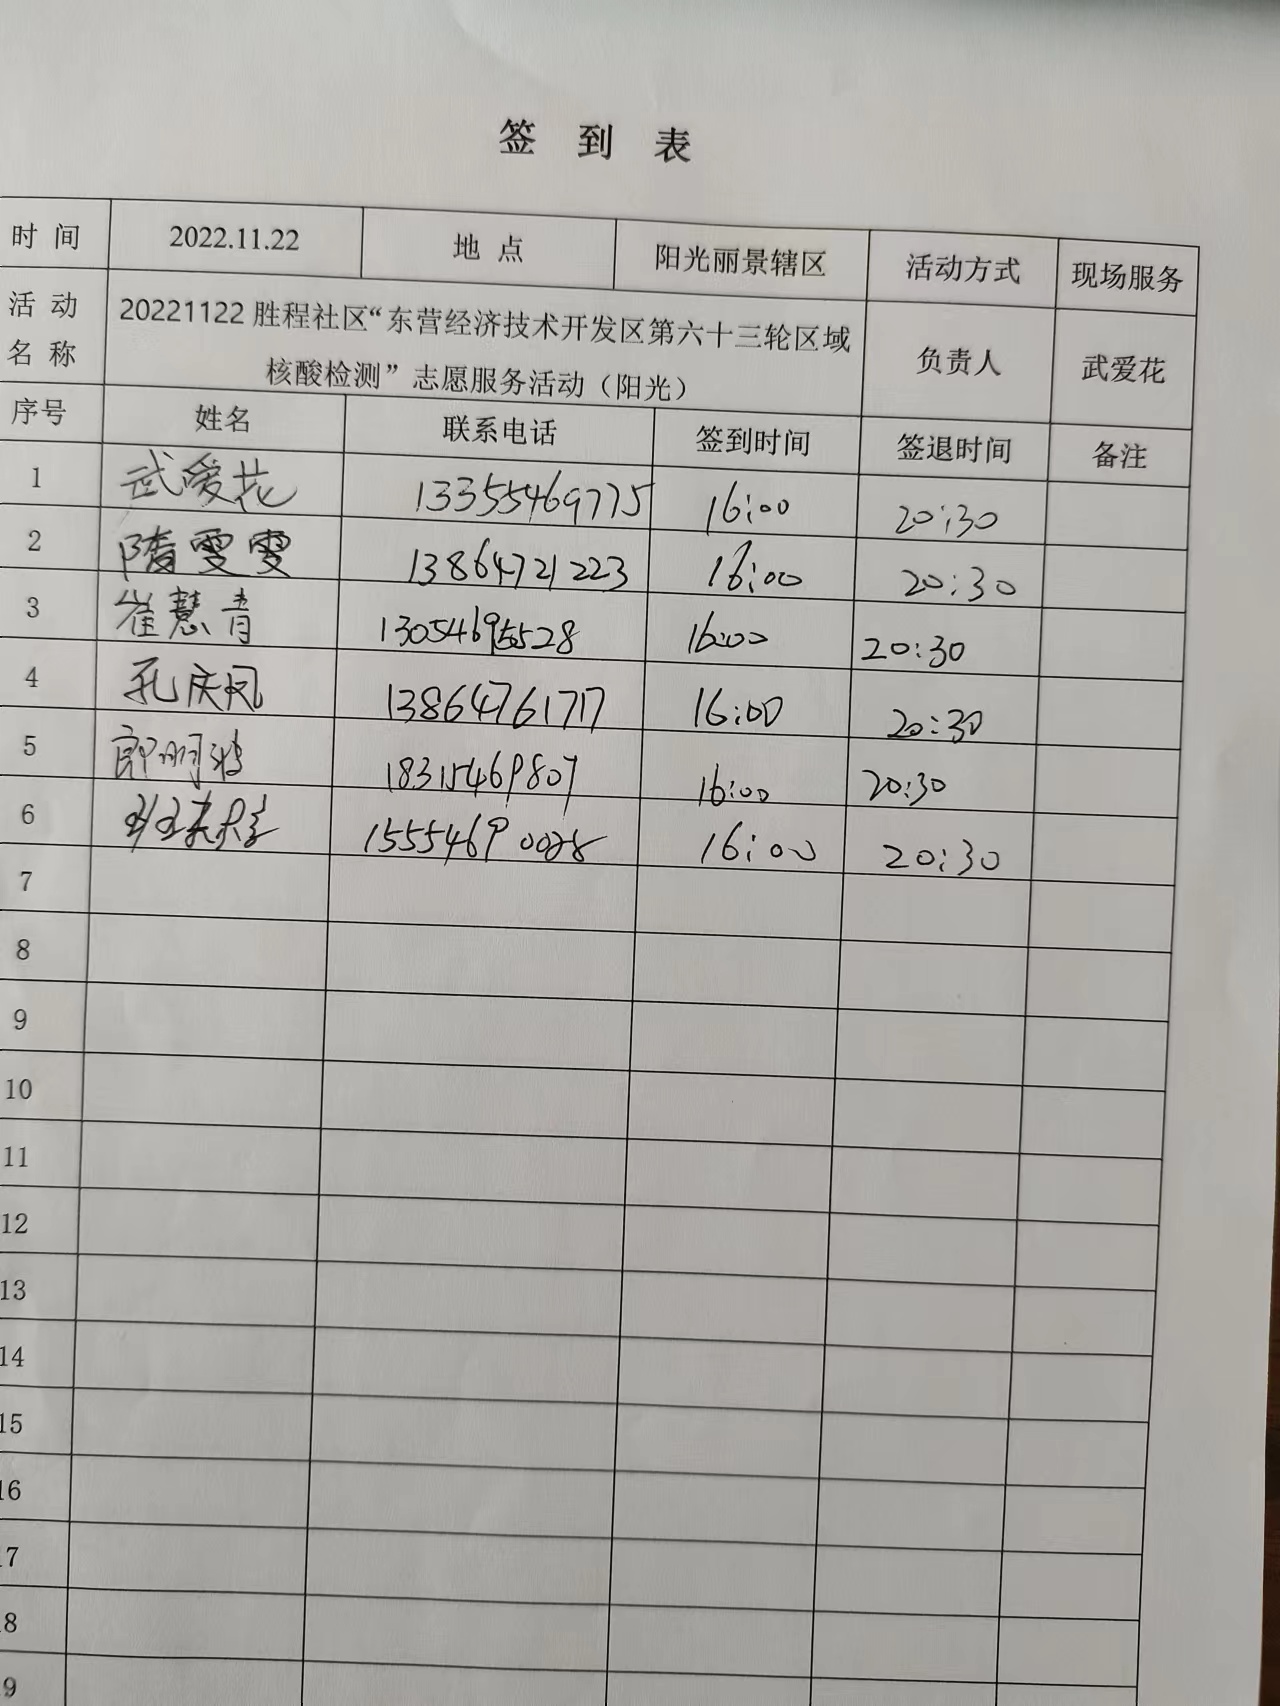 签 到 表
时 间 2022.11.22 地 点 阳光丽景辖区 活动方式 现场服务
活 动 名 称 20221122 胜程社区“东营经济技术开发区第六十三轮区域
核酸检测”志愿服务活动（阳光） 负责人 武爱花
序号 姓名 联系电话 签到时间 签退时间 备注
1 武爱花 13355469775 16:00 20:30
2 隋雯雯 13864721223 16:00 20:30
3 崔慧青 13054695528 16:00 20:30
4 孔庆凤 13864761717 16:00 20:30
5 郎明 18315469807 16:00 20:30
6 15554690028 16:00 20:30
7
8
9
10
11
12
13
14
15
16
17
18
19